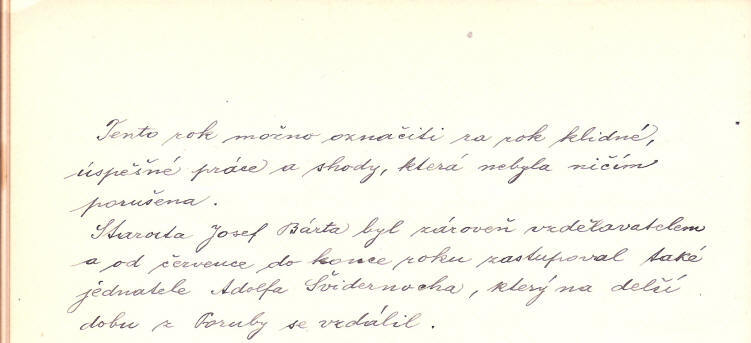 Tento rok možno označiti za rok klidné,
úspěšné práce a shody, která nebyla ničím
porušena.
Starosta Josef Bárta byl zároveň vzdělavatelem
a od července do konce roku zastupoval také
jednatele Adolfa Švidernocha, který na delší
dobu z Poruby se vzdálil.